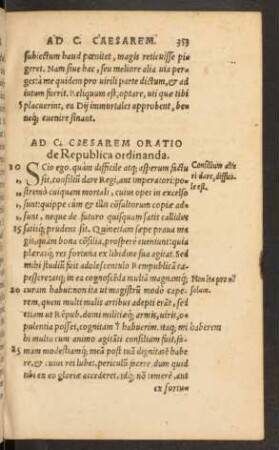 AD C. CAESAREM. 353
subiectum haud pœnitet, magis reticuisse pi⸗
geret. Nam siue hac, seu meliore alia uia per⸗
gesta me quidem pro uirili parte dictum, & ad
iutum fuerit. Reliquum est, optare, uti quæ tibi
5 placuerint, ea Dij immortales approbent, be⸗
neq; euenire sinant.
AD C. CAESAREM ORATIO
de Republica ordinanda.
10 SCio ego, quàm difficile atq; asperum factu
sit, consiliũ dare Regi, aut imperatori: po⸗
stremò cuiquam mortali, cuius opes in excelso
sunt: quippe cùm & illis cõsultorum copiæ ad⸗
sunt, neque de futuro quisquam satis callidus
15 satisq; prudens sit. Quinetiam sæpe praua ma
gis, quàm bona cõsilia, prosperè eueniunt: quia
plerasq; res fortuna ex libidine sua agitat. Sed
mihi studiũ fuit adolescentulo Rempublicã ca⸗
pessere: atq; in ea cognoscẽda multã magnamq;
20 curam habui: non ita ut magistrũ modò cape⸗
rem, quem multi malis artibus adepti erãt, sed
etiam ut Rẽpub. domi militiæq;, armis, uiris, o⸗
pulentia posset, cognitam habuerim. itaq; mihi
multa cum animo agitãti consilium fuit, fa⸗
25 mam modestiamq; meã post tuã dignitatẽ habe
re, & cuius rei lubet, periculũ facere dum quid
tibi ex eo gloriæ accederet. idq; nõ temerè, aut
ex fortu⸗
Consilium alte
ri dare, diffici⸗
le est.
Non ita pro nõ
solum.
haberem